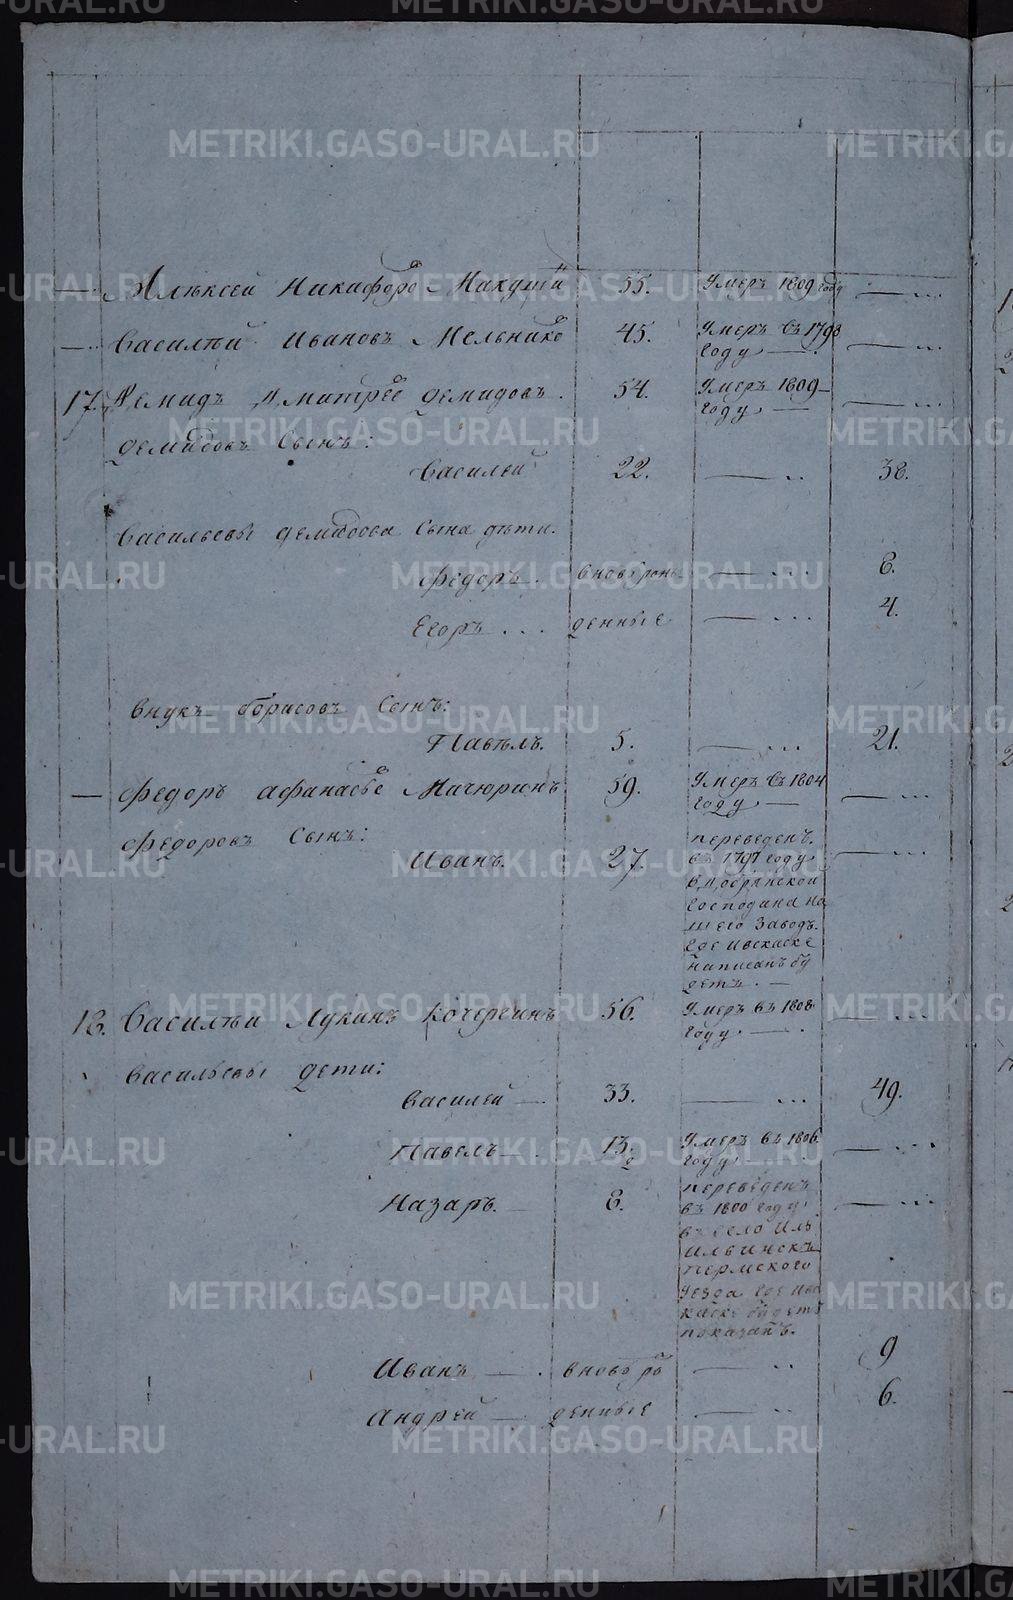 — Алѣксей Никифоровъ 55. Умеръ 1809 году — ...
— Василѣй Ивановъ Мельниковъ 45. Умеръ въ 1798
году — . — ...
17. Демидъ Дмитреевъ Демидовъ. 54. Умеръ 1809
году — — ...
Демидовъ Сынъ:
Василей 22. — .. 38.
Васильевы Демидова Сына дѣти.
Федоръ . вновьрож — ... 8.
Егоръ . . . денные — ... 4.
внукъ борисовъ Сынъ:
Павѣлъ. 5. — ... 21.
— Федоръ Афанасьевъ Мичюринъ 59. Умеръ въ 1804
году — — ...
Федоровъ Сынъ:
Иванъ. 27. переведенъ.
въ 1797 году — ...
в Добрянской
господина на
шего заводъ.
где
написанъ бу
детъ. —
18. Василѣй Лукинъ Кочергинъ 56. Умеръ въ 1808
году. — . — ...
Васильевы дети:
Василей — . 33. — ... 49.
Павелъ . 13. Умеръ въ 1806
году — ...
Назаръ. — 8. переведенъ
въ 1800 году — ...
въ село Иль
ильинскъ
пермского
уезда где
будетъ
показанъ.
Иванъ — . вновь ро — .. 9
Андрей — денные — .. 6.
METRIKI.GASO-URAL.RU